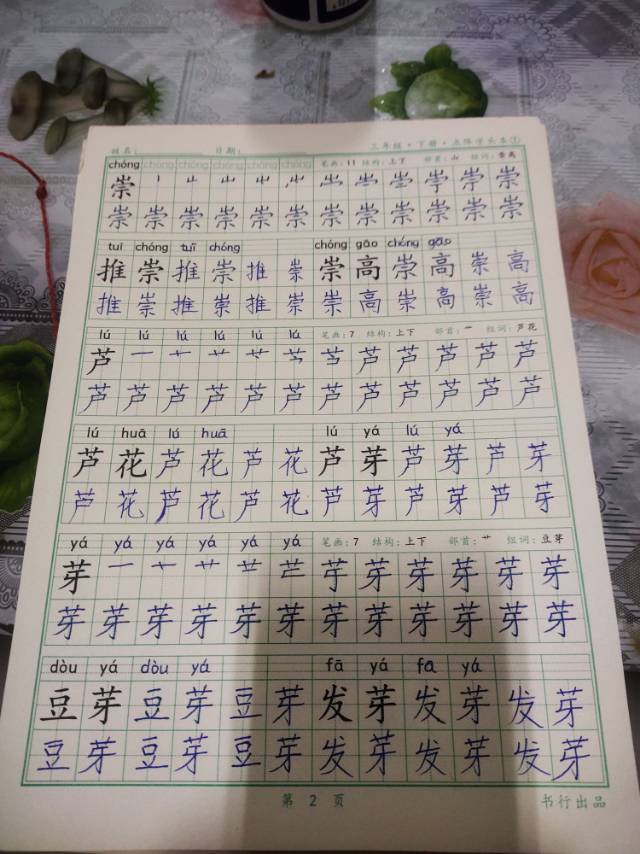 姓名： 日期： 三年级·下册·点阵字头本①
chóng chóng chóng chóng chóng chóng 笔画：11 结构：上下 部首：山 组词：崇高
崇 崇 崇 崇 崇 崇 崇
崇 崇 崇 崇 崇 崇 崇 崇 崇 崇 崇 崇
tuī chóng tuī chóng chóng gāo chóng gāo
推 崇 推 崇 推 崇 崇 高 崇 高 崇 高
推 崇 推 崇 推 崇 崇 高 崇 高 崇 高
lú lú lú lú lú lú 笔画：7 结构：上下 部首：艹 组词：芦花
芦 一 十 艹 芦 芦 芦 芦 芦 芦
芦 芦 芦 芦 芦 芦 芦 芦 芦 芦 芦 芦
lú huā lú huā lú yá lú yá
芦 花 芦 花 芦 花 芦 芽 芦 芽 芦 芽
芦 花 芦 花 芦 花 芦 芽 芦 芽 芦 芽
yá yá yá yá yá yá 笔画：7 结构：上下 部首：艹 组词：豆芽
芽 一 十 艹 芽 芽 芽 芽 芽
芽 芽 芽 芽 芽 芽 芽 芽 芽 芽 芽 芽
dòu yá dòu yá fā yá fā yá
豆 芽 豆 芽 豆 芽 发 芽 发 芽 发 芽
豆 芽 豆 芽 豆 芽 发 芽 发 芽 发 芽
第 2 页 书行出品